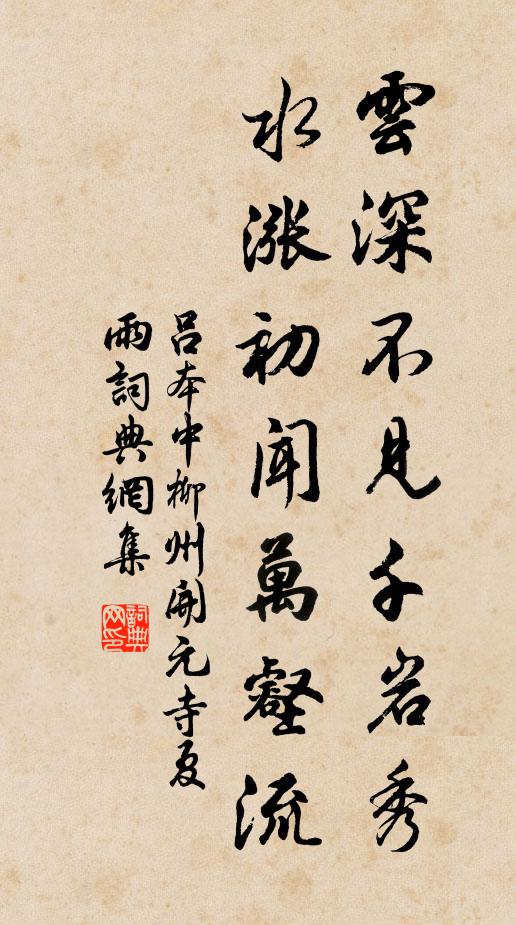 雲深不見千岩秀
水漲初聞萬壑流
呂本中柳州開元寺夏
雨詞典網集
詞典网印